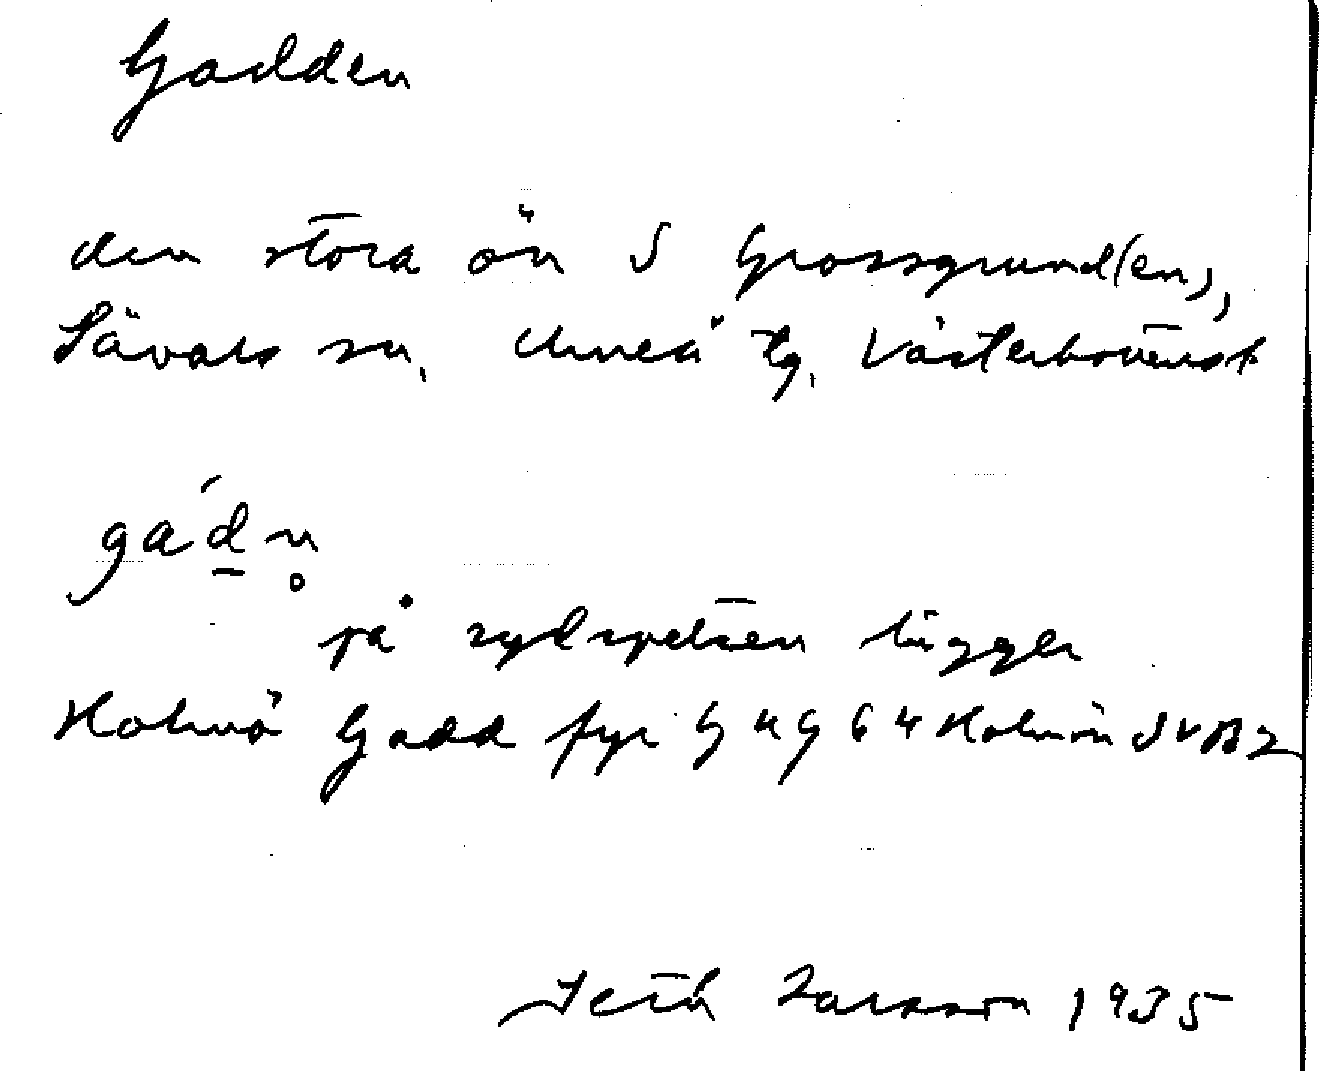 Gadden
den stora ön S Grossgrund(en),
Sävars sn, Umeå tg, Västerbotten
gádn̥
på sydspetsen ligger
Holmö Gadd fyr G 4 9 6 4 Holmön SV B2
Seth Larsson 1935